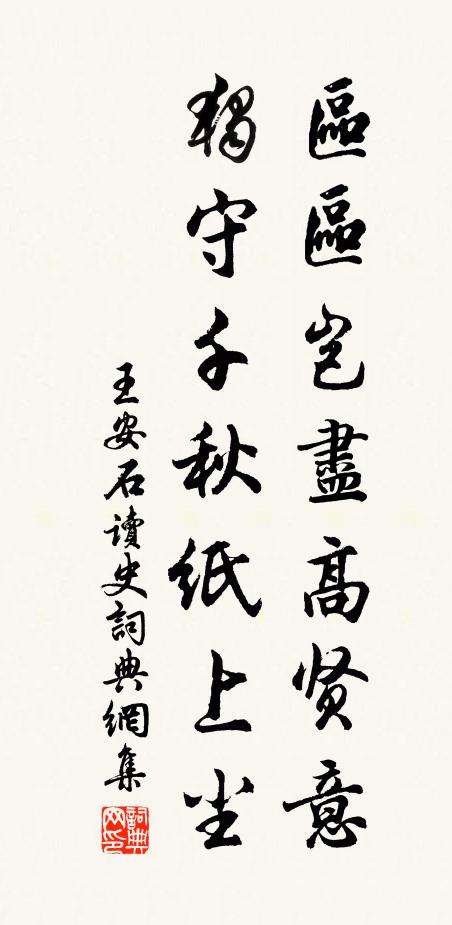 區區岂盡高贤意
獨守千秋紙上尘
王安石讀史詞典網集
詞典网印